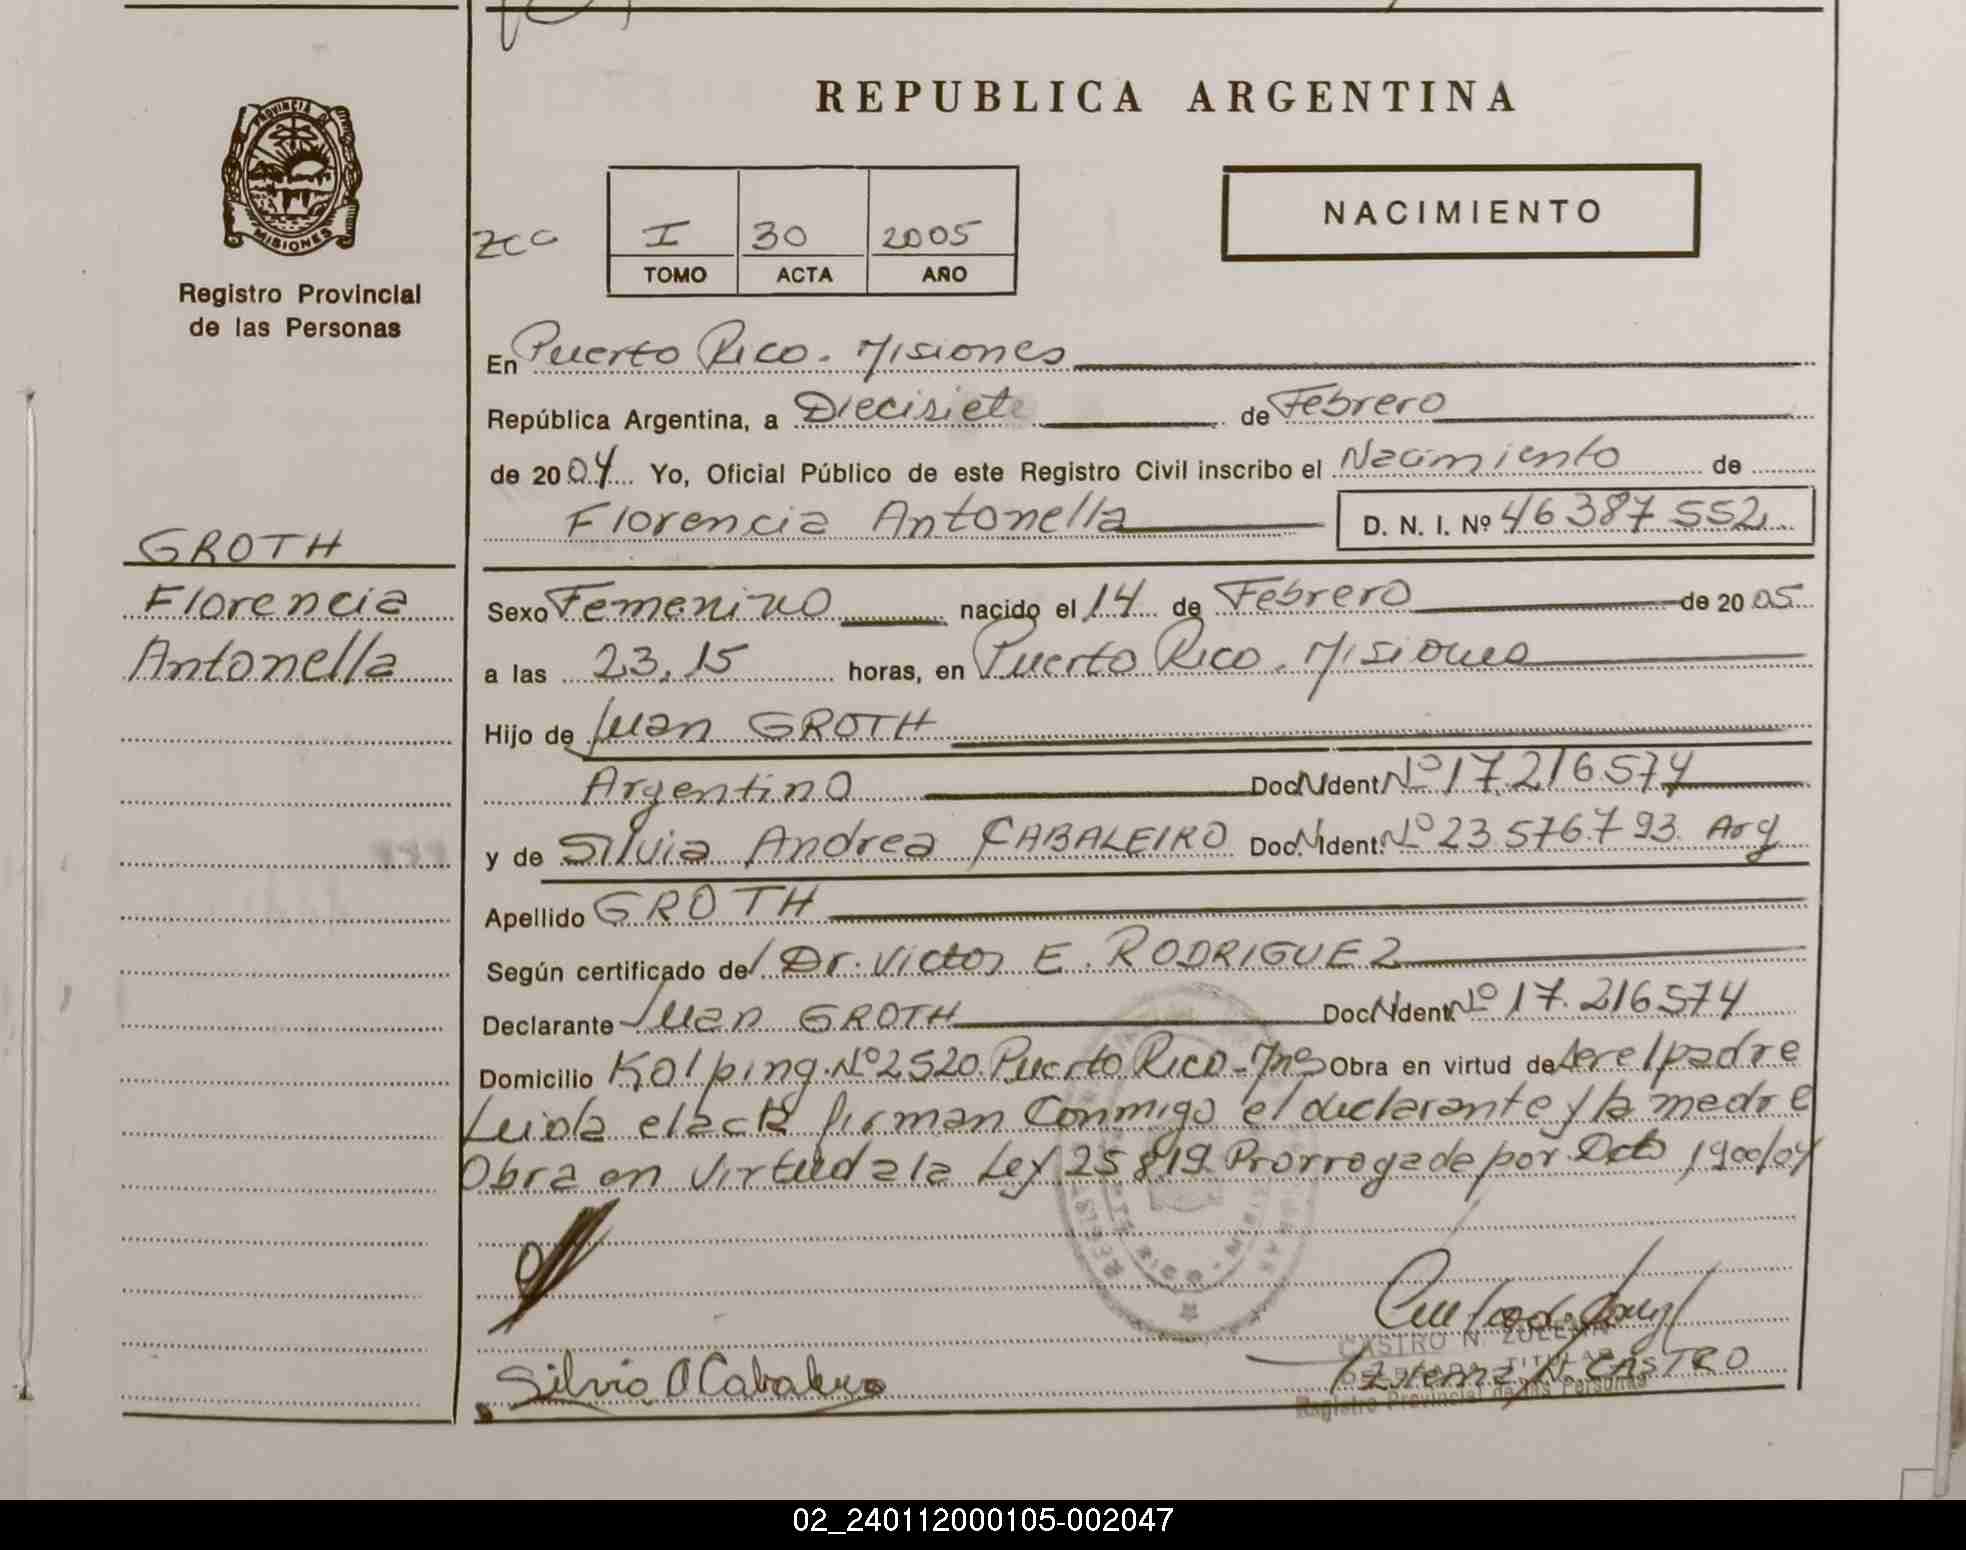 REPUBLICA ARGENTINA
PROVINCIA DE MISIONES
Registro Provincial
de las Personas
I 30 2005
TOMO ACTA AÑO
NACIMIENTO
En Puerto Rico. Misiones
República Argentina, a Diecisiete de Febrero
de 2004 Yo, Oficial Público de este Registro Civil inscribo el Nacimiento de
Florencia Antonella D. N. I. Nº 46387552
GROTH
Florencia
Antonella
Sexo Femenino nacido el 14 de Febrero de 2005
a las 23,15 horas, en Puerto Rico. Misiones
Hijo de Juan GROTH
Argentino Doc. Ident. Nº 17.216574
y de Silvia Andrea CABALEIRO Doc. Ident. Nº 23.576.793. Arg
Apellido GROTH
Según certificado de Dr. Victor E. RODRIGUEZ
Declarante Juan GROTH Doc. Ident. Nº 17.216574
Domicilio Kolping Nº 2520 Puerto Rico - Mnes Obra en virtud de ser el padre
Leida el acta firman Conmigo el declarante y la madre
Obra en virtud a la Ley 25819. Prorrogada por Dcto 1900/04
Silvia A Cabaleiro
CASTRO N. ZULEMA
TITULAR
Zulema N. CASTRO
Registro Provincial de las Personas
02_240112000105-002047